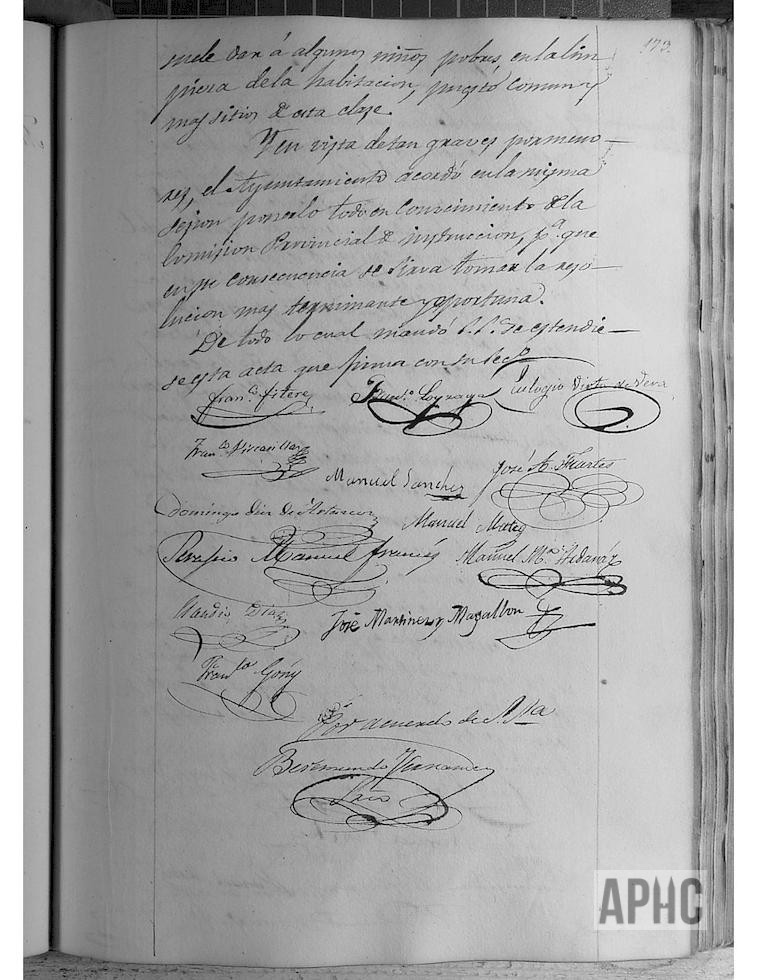 173.
suele dar á algunos niños pobres, en la lim
pieza de la habitacion, puesto comun y
mas sitios de esta clase.
Y en vista de tan graves pormeno-
res, el Ayuntamiento acordó en la misma
sesion ponerlo todo en conocimiento de la
Comision Provincial de instruccion, pa. que
en su consecuencia se sirva tomar la reso-
lucion mas terminante y oportuna.
De todo lo cual mandó S.S. se estendie-
se esta acta que firma con su Secrio
Franco. Fitere
Franco. Loyzaga
Eulogio de Vera
Franco
Manuel Sanchez
José A. Fuertes
Domingo Diez de
Manuel Mateo
Serapio Manuel Francés
Manuel Ma.
Claudio Diaz
José Martinez y Magallon
Franco Goñi
Por acuerdo de S. Sría
Bermundo Hernandez
Srio
APHC